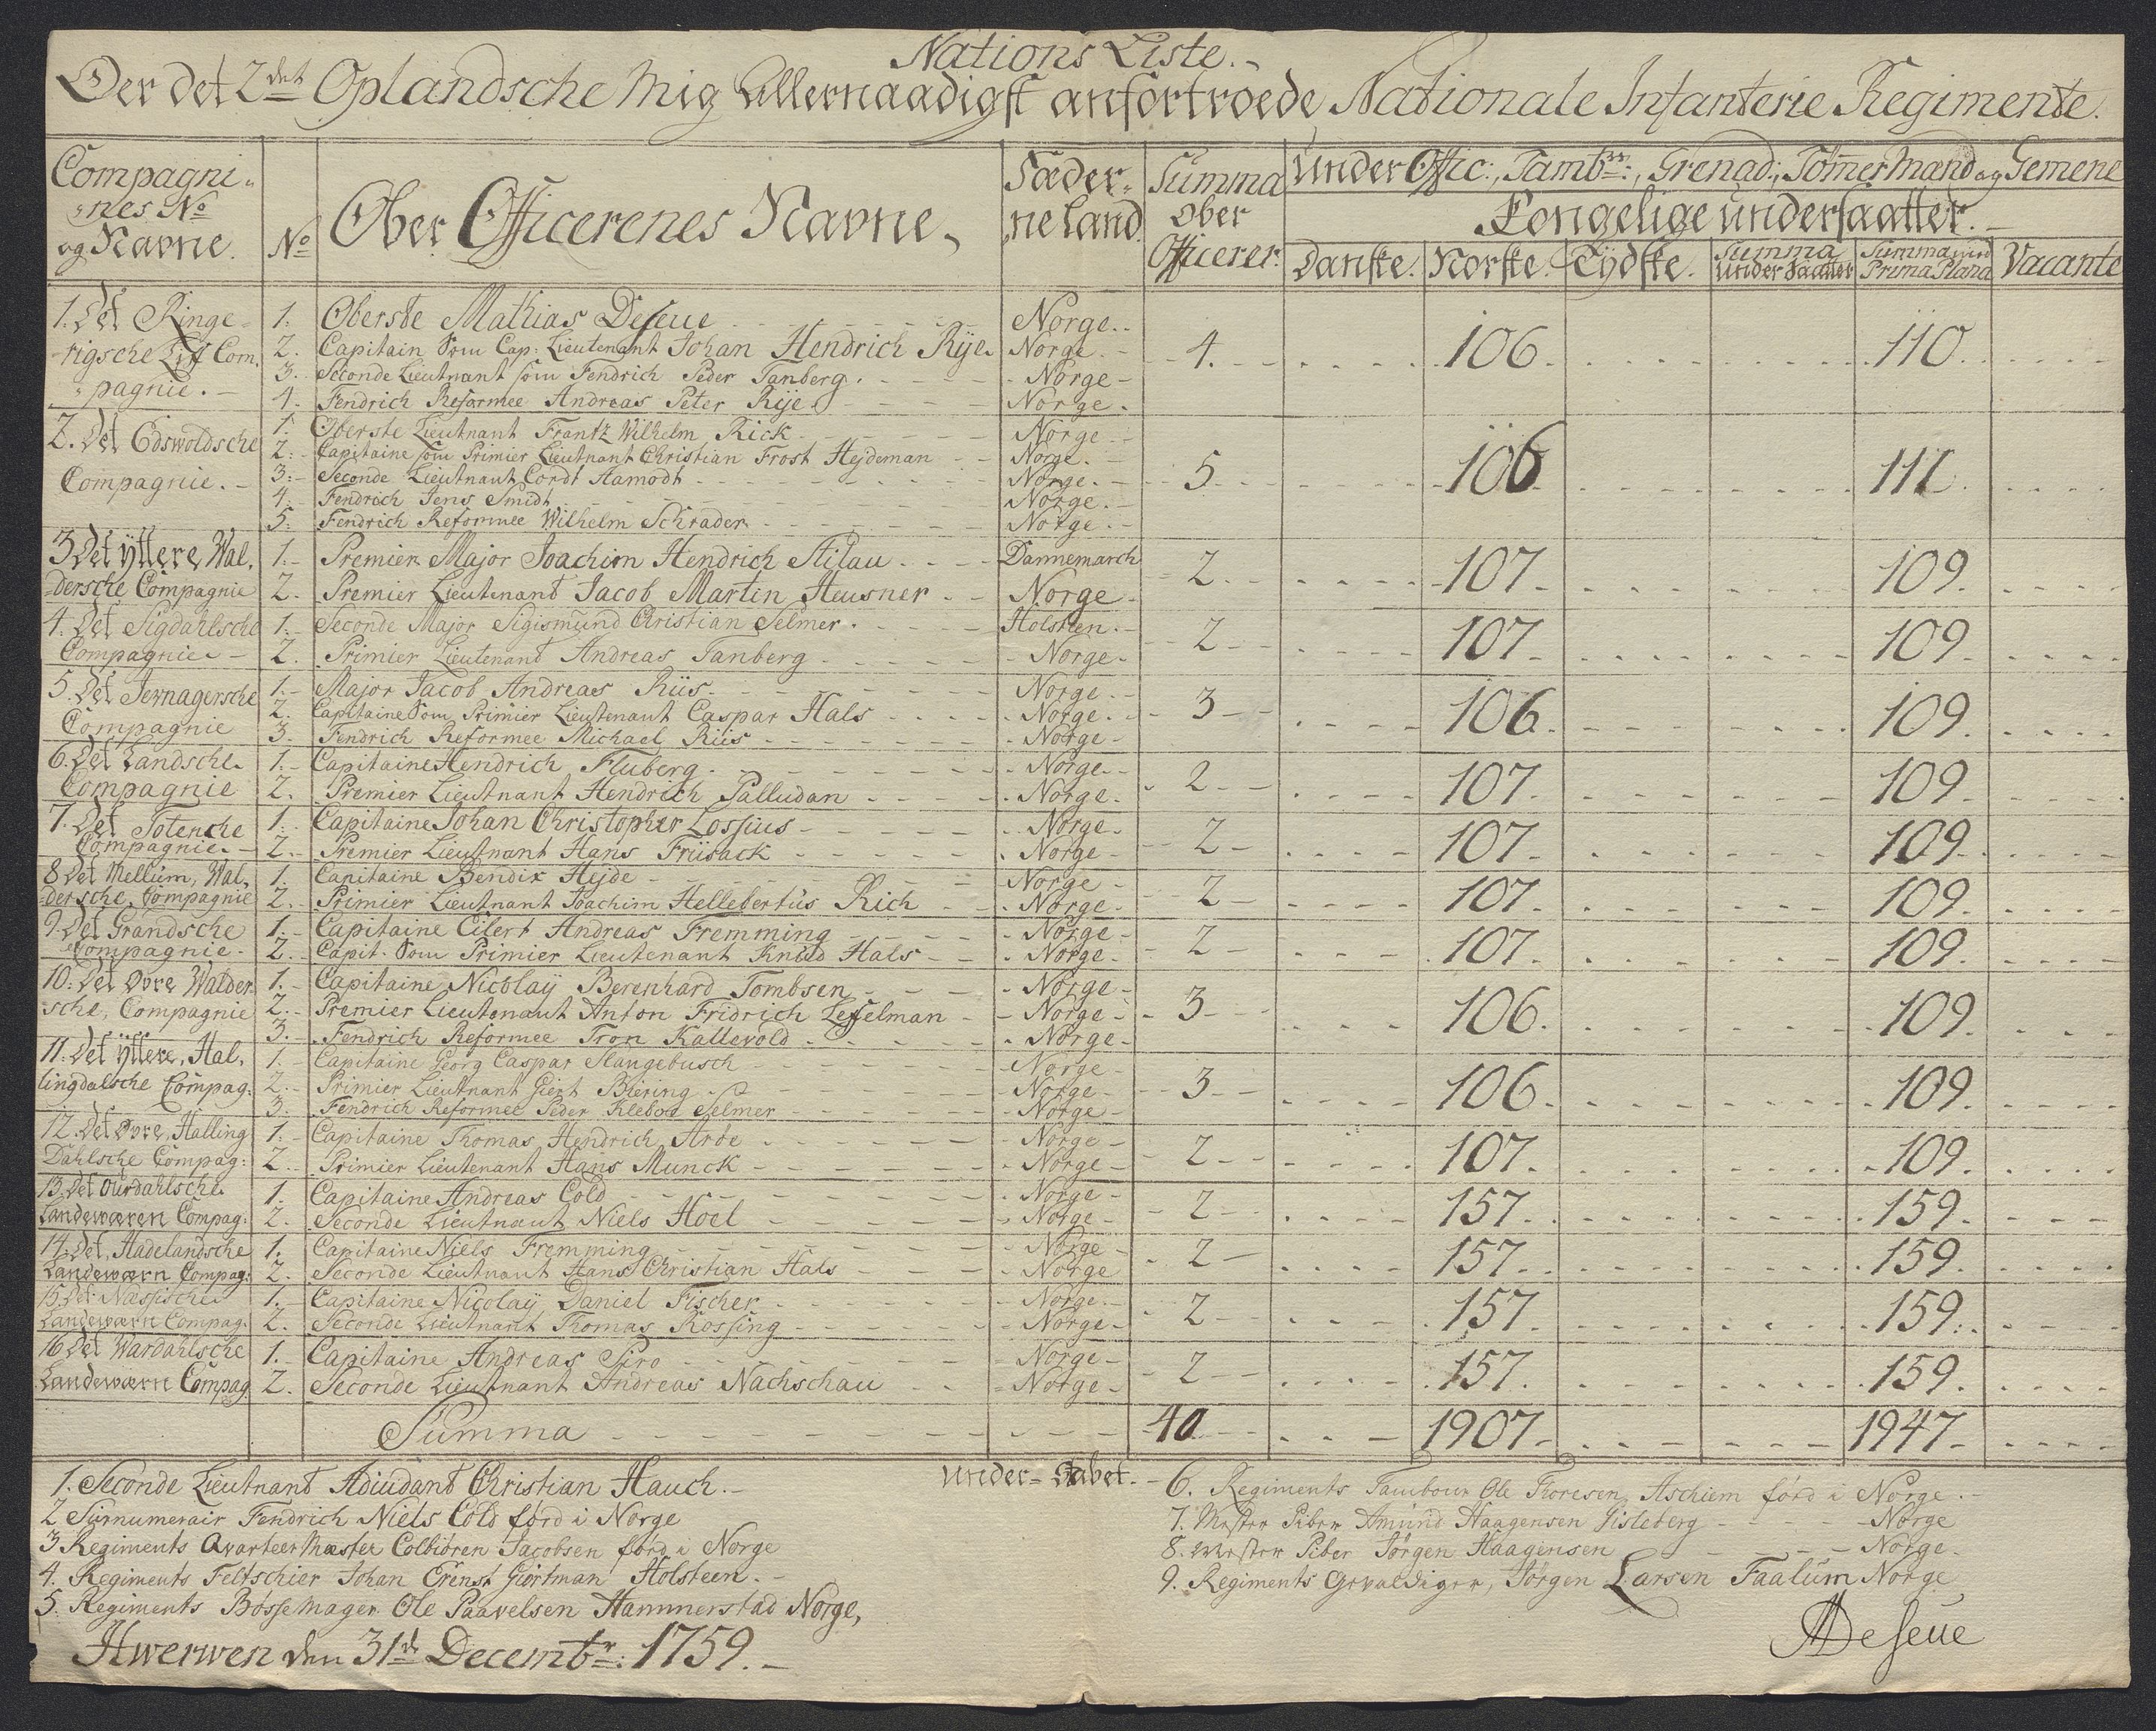 Nations Liste.
Over det 2det Oplandsche Mig Allernaadigst anfortroede Nationale Infanterie Regimente.
Compagni-
nes No
og Navne.
No
Ober Officerenes Navne,
Fæder-
neland.
Summa
Ober
Officerer.
Under Offic:, Tambr:, Grenad:, Tömermand og Gemene
Kongelige undersaatter.
Danske. Norske. Tydske. Summa Undersaatter Summa med Prima Plana Vacante
1. Det Ringe-
rigsche Lif Com,
pagnie.
1. Oberste Mathias Deseue Norge.
2. Capitain Som Cap: Lieutenant Johan Hendrich Rÿe. Norge. 4. 106. 110.
3. Seconde Lieutnant som Fendrich Peder Tanberg. Norge
4. Fendrich Reformee Andreas Peter Rÿe. Norge.
2. Det Edswoldsche
Compagnie.
1. Oberste Lieutnant Frantz Wilhelm Rick Norge
2. Capitaine som Primier Lieutnant Christian Frost Hejdeman Norge.
3. Seconde Lieutnant Cordt Aamodt Norge. 5 106 111.
4. Fendrich Jens Smidt Norge.
5. Fendrich Reformee Wilhelm Schrader Norge.
3 Det ÿttere Wal,
dersche Compagnie
1. Premier Major Joachim Hendrich Stilau Dannemarch
2. Premier Lieutenant Jacob Martin Heusner Norge 2. 107. 109.
4. Det Sigdahlsche
Compagnie
1. Seconde Major Sigismund Christian Selmer. Holsten.
2. Primier Lieutenant Andreas Tanberg Norge. 2 107 109.
5. Det Jernagersche
Compagnie
1. Major Jacob Andreas Riis. Norge.
2. Capitaine Som Primier Lieutenant Caspar Hals Norge. 3 106. 109.
3. Fendrich Reformee Michael Riis Norge
6. Det Landsche.
Compagnie
1. Capitaine Hendrich Fluberg. Norge.
2. Premier Lieutnant Hendrich Palludan Norge. 2 107. 109.
7. Det Totensche
Compagnie.
1. Capitaine Johan Christopher Lossius Norge.
2. Premier Lieutnant Hans Friisack Norge 2 107. 109.
8 Det Mellum, Wal,
dersche, Compagnie
1. Capitaine Bendix Hejde Norge
2. Primier Lieutnant Joachim Hellebertus Rich Norge. 2 107. 109.
9. Det Grandsche
Compagnie.
1. Capitaine Eilert Andreas Fremming Norge
2. Capit. Som Primier Lieutenant Knud Hals Norge. 2 107. 109.
10. Det Øvre Walder
sche, Compagnie
1. Capitaine Nicolaÿ Berenhard Tombsen Norge
2. Premier Lieutenant Anton Fridrich Lesselman Norge 3 106. 109.
3. Fendrich Reformee Tron Kattevold. Norge.
11. Det ÿttere, Hal,
lingdalsche Compag.
1. Capitaine Georg Caspar Slangebusch Norge
2. Primier Lieutnant Giert Biering Norge 3 106. 109.
3. Fendrich Reformee Peder Kleboe Selmer Norge
12. Det Øvre, Halling
Dahlsche Compag:
1. Capitaine Thomas, Hendrich, Arbe Norge
2. Primier Lieutenant Hans Munck Norge 2 107. 109.
13. Det Ourdahlsche.
Landewæren Compag:
1. Capitaine Andreas Cold Norge
2. Seconde Lieutnant Niels Hoel Norge 2 157. 159.
14. Det, Hadelandsche
Landewærn Compag:
1. Capitaine Niels Fremming Norge
2. Seconde Lieutnant Hans Christian Hals Norge 2 157. 159.
15. Det Næssische
Landewærn Compag.
1. Capitaine Nicolaÿ, Daniel Fischer Norge.
2. Seconde Lieutnant Thomas Rossing Norge 2 157. 159.
16 Det Wardahlsche
Landewærn Compag
1. Capitaine Andreas Piro Norge
2. Seconde Lieutnant Andreas Nachschau Norge 2 157. 159.
Summa 40 1907. 1947.
Under-Stabet.
1. Seconde Lieutnant Adiudant Christian Hauch.
2 Surnumerair Fendrich Niels Cold förd i Norge
3 Regiments Qvarteer Mæster Colbiören Jacobsen förd i Norge
4. Regiments Feltschier Johan Ernst Giortman Holsteen.
5. Regiments Bøsse Mager Ole Paavelsen Hammerstad Norge,
6. Regiments Tambour Ole Thoresen, Aschiem förd i Norge.
7. Mester Piber Amund Haagensen Gisleberg Norge
8. Mester Piber Jörgen Haagensen Norge.
9. Regiments Gevaldiger, Jörgen Larsen Faalum Norge
Hwerwen den 31de Decembr: 1759.
MDeseue